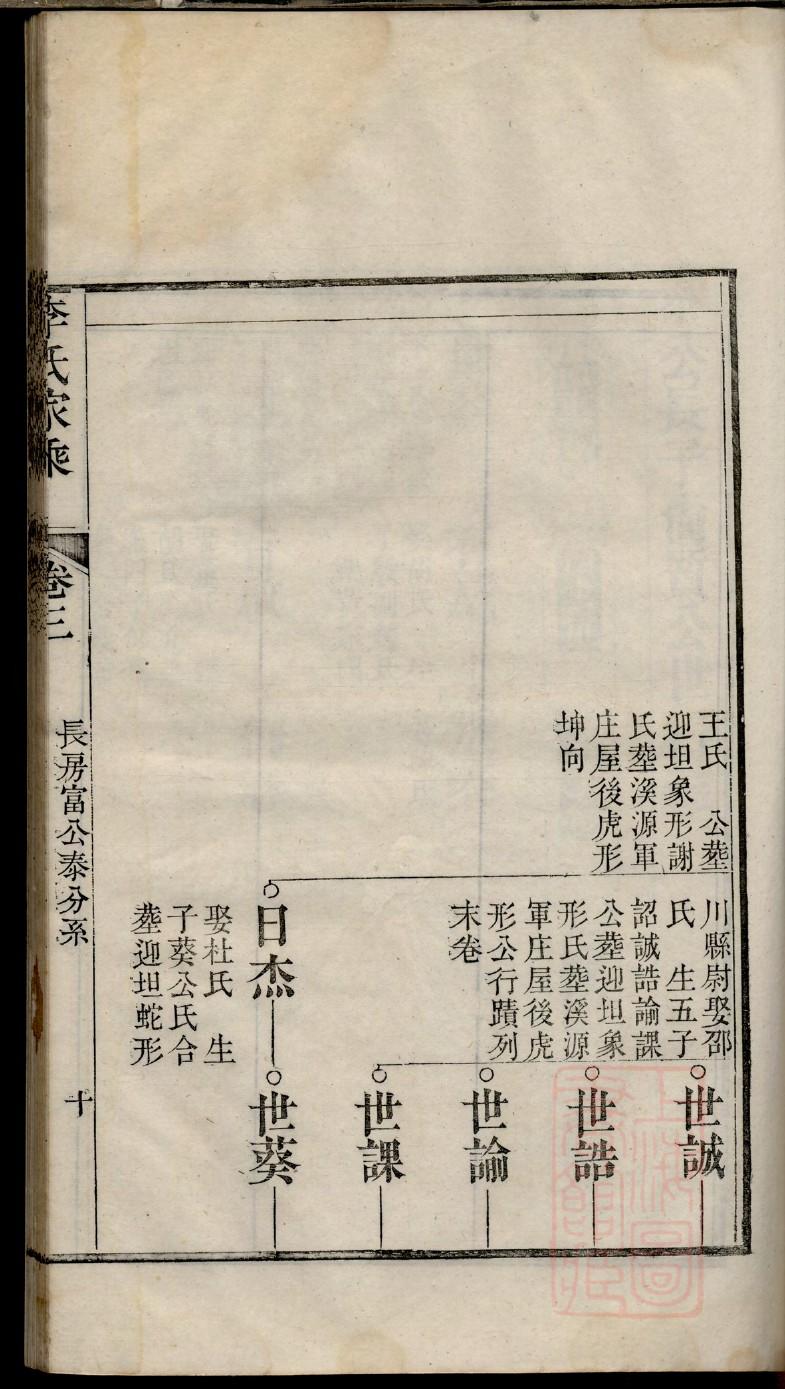 王氏　公塟
迎坦象形謝
氏塟溪源軍
庄屋後虎形
坤向
川縣尉娶邵
氏　生五子
詔誠誥諭課
公塟迎坦象
形氏塟溪源
軍庄屋後虎
形公行蹟列
末卷
世誠
世誥
世諭
世課
日杰
娶杜氏　生
子葵公氏合
塟迎坦蛇形
世葵
李氏家乘
卷三
長房富公泰分系
十